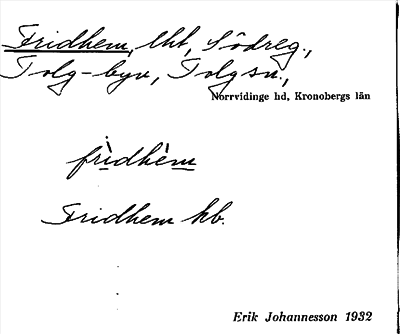 Fridhem, lht, Södreg.,
Tolg-byn, Tolg sn.,
Norrvidinge hd, Kronobergs län
frìdhèm
Fridhem hb.
Erik Johannesson 1932